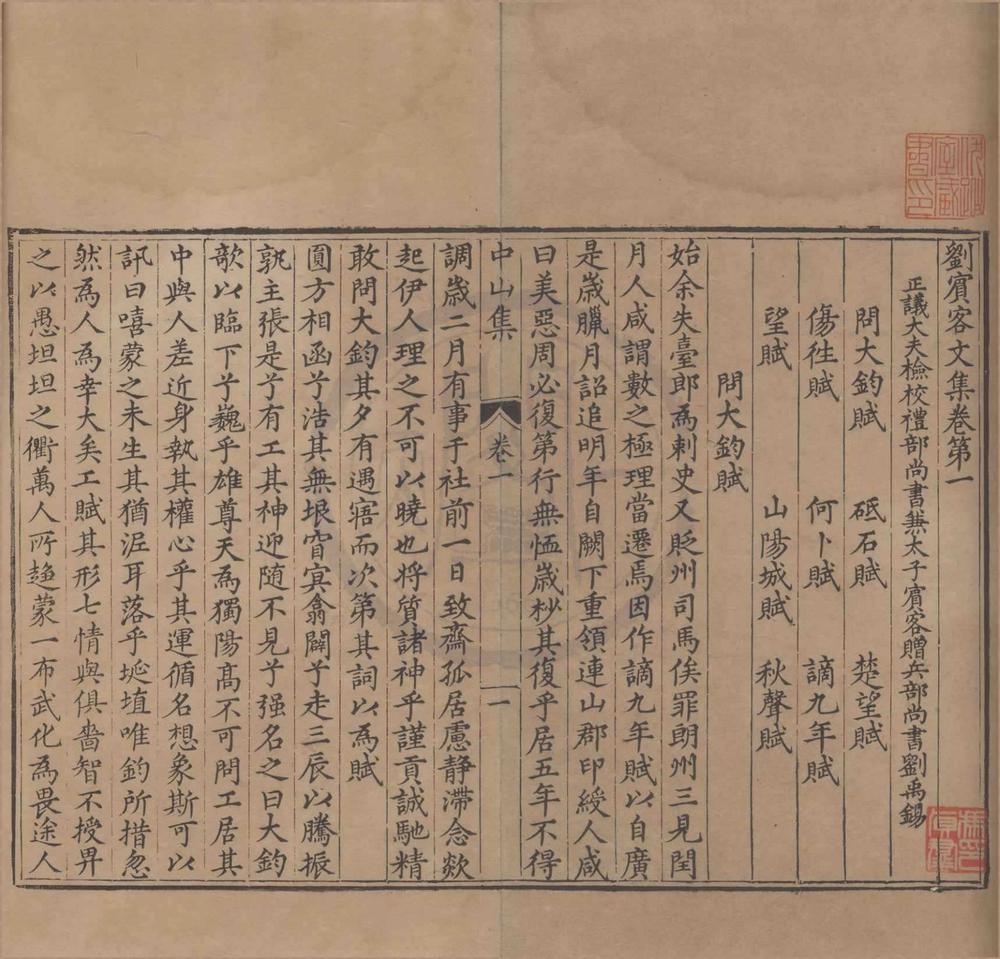 劉賓客文集卷第一
正議大夫檢校禮部尚書兼太子賓客贈兵部尚書劉禹錫
問大鈞賦 砥石賦 楚望賦
傷徃賦 何卜賦 謫九年賦
望賦 山陽城賦 秋聲賦
問大鈞賦
始余失臺郎為刺史又貶州司馬俟罪朗州三見閏
月人咸謂數之極理當遷焉因作謫九年賦以自廣
是歲臘月詔追明年自闕下重領連山郡印綬人咸
曰美惡周必復第行無恤歲杪其復乎居五年不得
中山集 卷一 一
調歲二月有事于社前一日致齋孤居慮静滯念欻
起伊人理之不可以曉也将質諸神乎謹貢誠馳精
敢問大鈞其夕有遇寤而次第其詞以為賦
圓方相函兮浩其無垠窅冥翕闢兮走三辰以騰振
孰主張是兮有工其神迎随不見兮强名之曰大鈞
歌以臨下兮巍乎雄尊天為獨陽髙不可問工居其
中與人差近身執其權心乎其運循名想象斯可以
訊曰嘻蒙之未生其猶泥耳落乎埏埴唯鈞所措忽
然為人為幸大矣工賦其形七情與俱嗇智不授畀
之以愚坦坦之衢萬人所趨蒙一布武化為畏途人